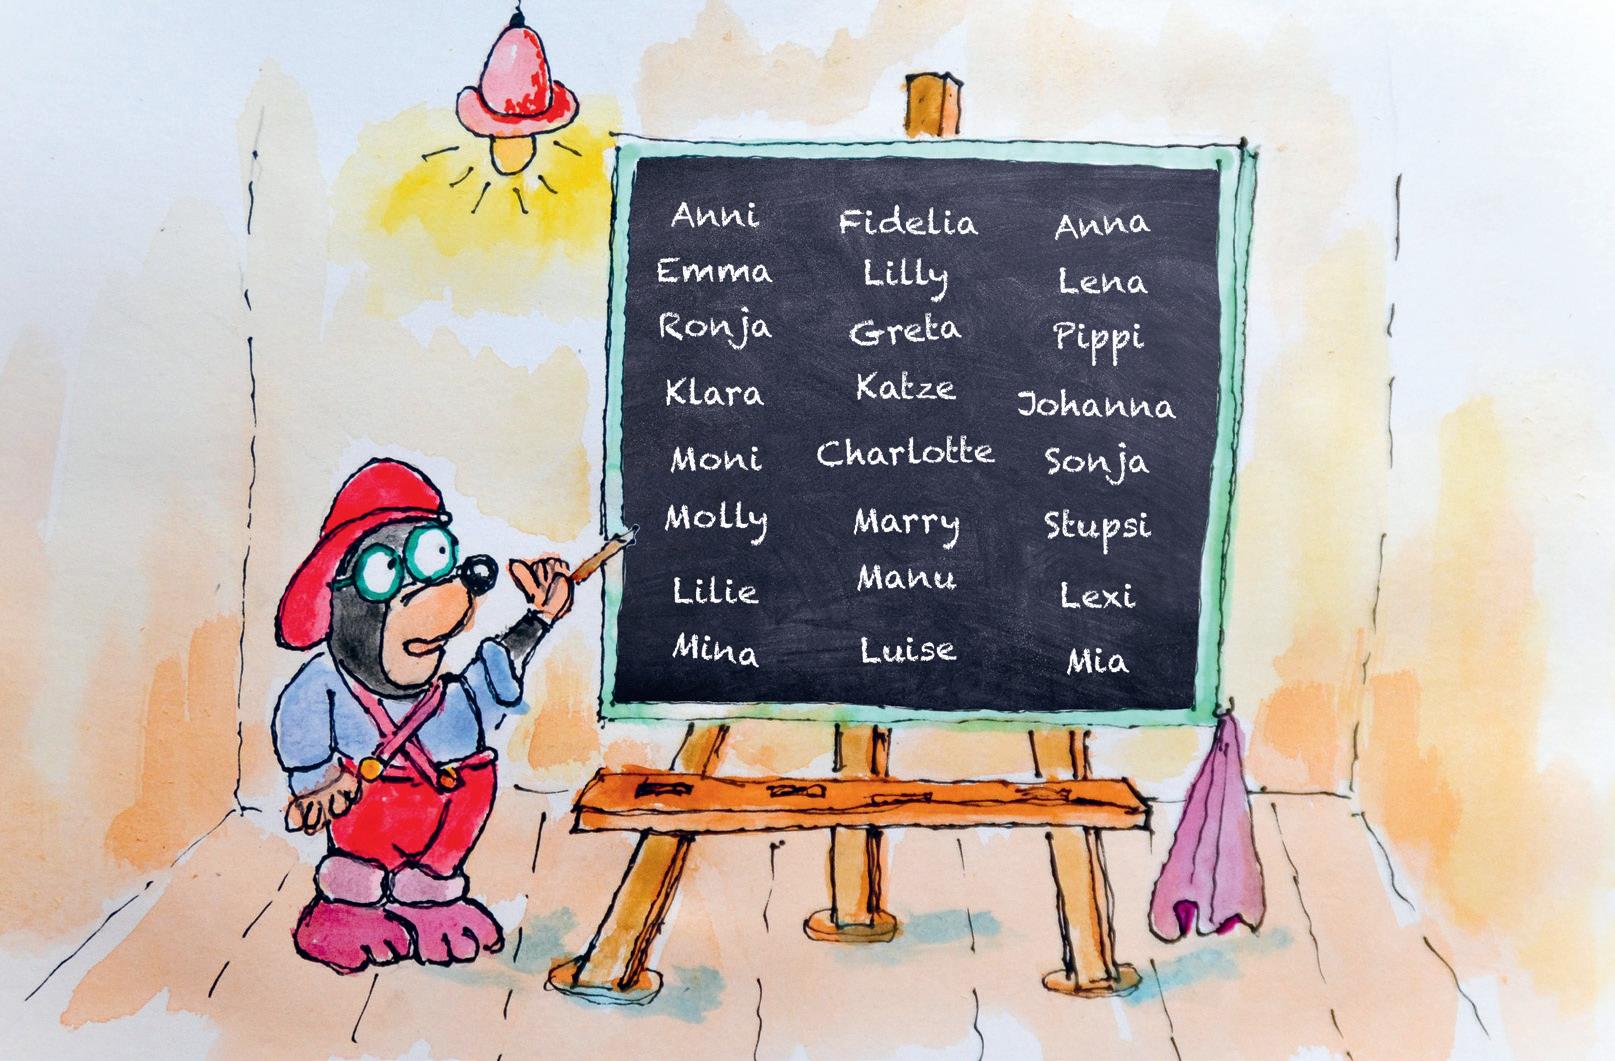 Anni Fidelia Anna
Emma Lilly Lena
Ronja Greta Pippi
Klara Katze Johanna
Moni Charlotte Sonja
Molly Marry Stupsi
Lilie Manu Lexi
Mina Luise Mia